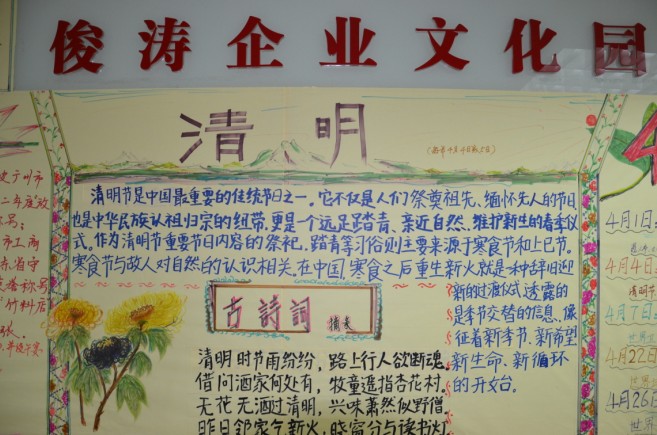 俊涛企业文化园
清明
清明节是中国最重要的传统节日之一。它不仅是人们祭奠祖先、缅怀先人的节日
也是中华民族认祖归宗的纽带,更是一个远足踏青、亲近自然、维护新生的春季仪
式。作为清明节重要节日内容的祭祀、踏青等习俗则主要来源于寒食节和上巳节。
寒食节与故人对自然的认识相关,在中国,寒食之后重生新火就是一种辞旧迎
新的过渡仪式,透露的
是季节交替的信息,像
征着新季节、新希望
新生命、新循环
的开始。
古詩詞
摘表
清明时节雨纷纷,路上行人欲断魂。
借问酒家何处有,牧童遥指杏花村。
无花无酒过清明,兴味萧然似野僧。
昨日邻家乞新火,晓窗分与读书灯
二年度
市工商
省守
称号
竹料店
4月1日
4月4日
清明节
4月7日
4月22日
4月26日
世界